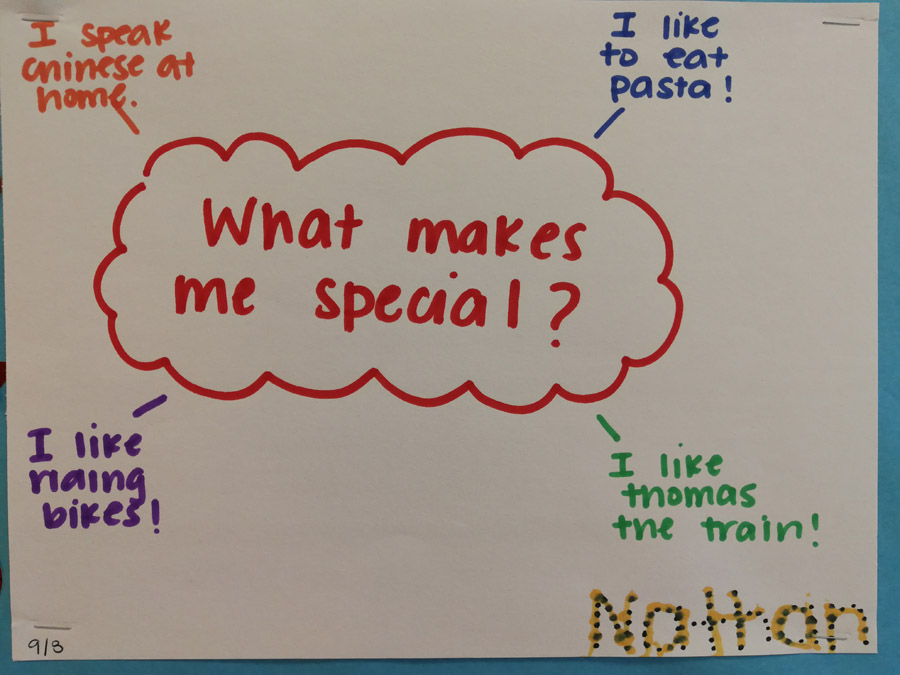 I speak
chinese at
home.
I like
to eat
pasta!
What makes
me special?
I like
riding
bikes!
I like
thomas
the train!
Nathan
9/3